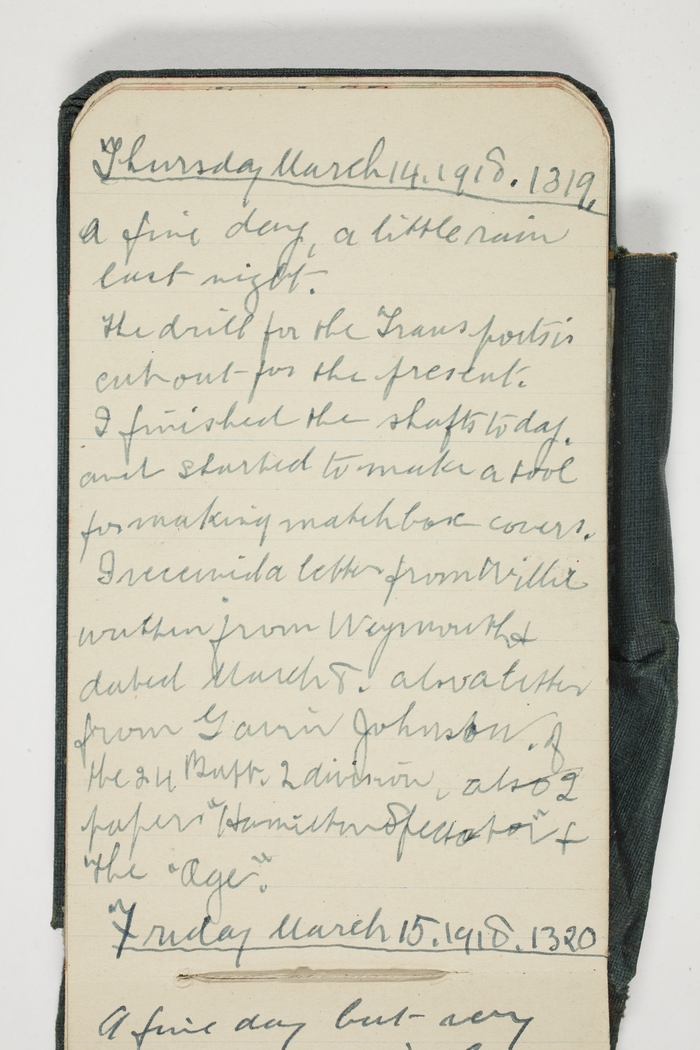 Thursday March 14. 1918. 1319.
A fine day, a little rain
last night.
The drill for the Transports is
cut out for the present.
I finished the shafts today.
and started to make a tool
for making matchbox covers.
I received a letter from Willie
written from Weymouth &
dated March 8. also a letter
from Gavin Johnston, of
the 24 Batt. 2 division, also 2
papers "Hamilton Spectator" &
The "Age".
Friday March 15. 1918. 1320
A fine day but very